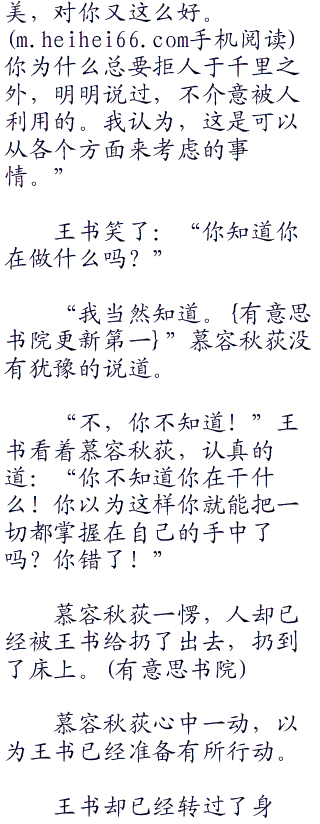 美，对你又这么好。
(m.heihei66.com手机阅读)
你为什么总要拒人于千里之
外，明明说过，不介意被人
利用的。我认为，这是可以
从各个方面来考虑的事
情。”
王书笑了：“你知道你
在做什么吗？”
“我当然知道。{有意思
书院更新第一}”慕容秋荻没
有犹豫的说道。
“不，你不知道！”王
书看着慕容秋荻，认真的
道：“你不知道你在干什
么！你以为这样你就能把一
切都掌握在自己的手中了
吗？你错了！”
慕容秋荻一愣，人却已
经被王书给扔了出去，扔到
了床上。(有意思书院)
慕容秋荻心中一动，以
为王书已经准备有所行动。
王书却已经转过了身